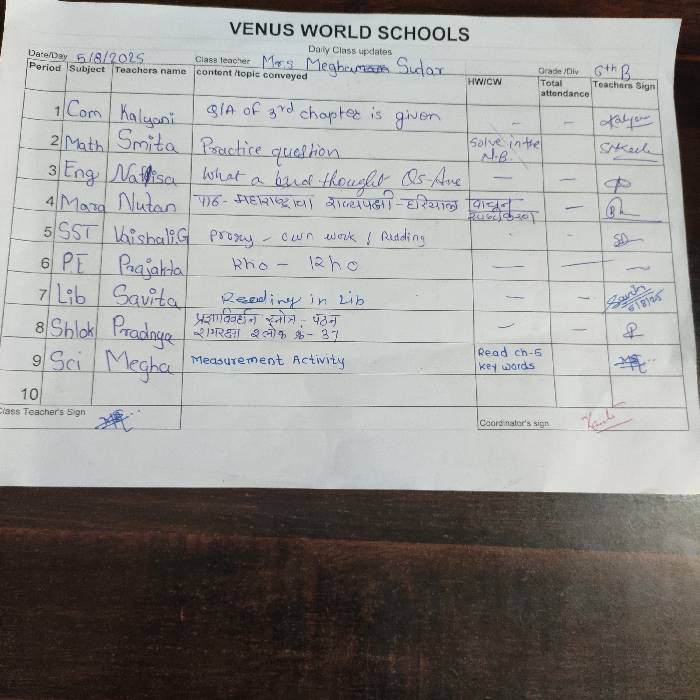 VENUS WORLD SCHOOLS
Daily Class updates
Date/Day 5/8/2025 Class teacher Mrs Megha Sutar Grade /Div 6th B
Period Subject Teachers name content /topic conveyed HW/CW Total attendance Teachers Sign
1 Com Kalyani Q/A of 3rd chapter is given — —
2 Math Smita Practice question Solve in the N.B. —
3 Eng Nafisa What a bird thought Qs-Ans — —
4 Mara Nutan पाठ - महाराष्ट्राचा राज्यपक्षी - हरियाल वाचून —
5 SST Vaishali.G Proxy - own work / Reading - -
6 P.E Prajakta Kho - Kho — —
7 Lib Savita Reading in Lib — —
8 Shlok Pradnya प्रज्ञाविवर्धन स्तोत्र - पठन
रामरक्षा श्लोक क्र - 37 — —
9 Sci Megha Measurement Activity Read ch-5 key words —
10
Class Teacher's Sign Coordinator's sign